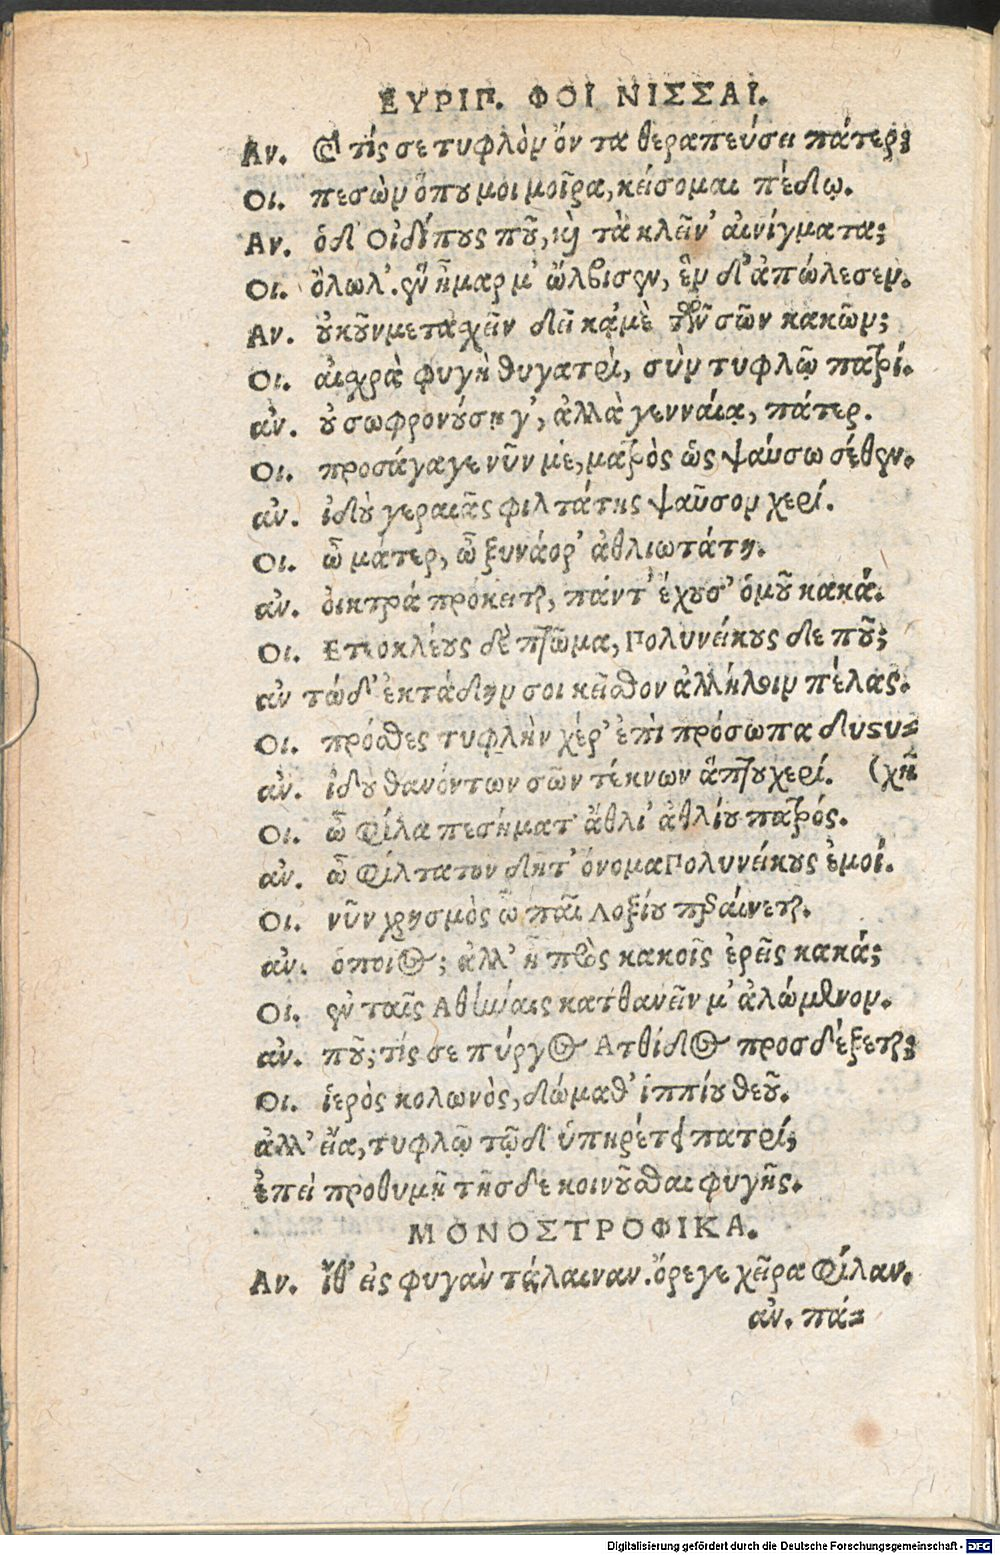 ΕΥΡΙΠ. ΦΟΙΝΙΣΣΑΙ.
Αν. Καὶ τίς σε τυφλὸν ὄντα θεραπεύσει πάτερ;
Οι. πεσὼν ὅπου μοι μοῖρα, κείσομαι πέδῳ.
Αν. ὁ δ' Οἰδίπους ποῦ, καὶ τὰ κλείν' αἰνίγματα;
Οι. ὄλωλ'. ἓν ἦμαρ μ' ὤλβισεν, ἓν δ' ἀπώλεσεν.
Αν. οὐκοῦν μετασχεῖν δεῖ κᾀμὲ τῶν σῶν κακῶν;
Οι. αἰσχρὰ φυγὴ θυγατρὶ, σὺν τυφλῷ πατρί.
αν. οὐ σωφρονούσῃ γ', ἀλλὰ γενναία, πάτερ.
Οι. προσάγαγε νῦν μέ,ματρὸς ὡς ψαύσω σέθεν.
αν. ἰδοὺ γεραιᾶς φιλτάτης ψαῦσον χερί.
Οι. ὦ μάτερ, ὦ ξυνάορ' ἀθλιωτάτη.
αν. οἰκτρά πρόκειται, πάντ' ἔχουσ' ὁμοῦ κακά.
Οι. Ετεοκλέους δὲ πτῶμα, Πολυνείκους δε ποῦ;
αν τώδ' ἐκτάδην σοι κεῖσθον ἀλλήλοιν πέλας.
Οι. πρόσθες τυφλὴν χέρ' ἐπὶ πρόσωπα δυστυ=
αν. ἰδου θανόντων σῶν τέκνων ἅπτου χερί. (χῆ
Οι. ὦ φίλα πεσήματ' ἄθλι' ἀθλίου πατρός.
αν. ὦ φίλτατον δῆτ' ὄνομα Πολυνείκους ἐμοί.
Οι. νῦν χρησμὸς ὦ παῖ Λοξίου περαίνεται.
αν. ὁποῖος; ἀλλ' ἦ πρὸς κακοῖς ἐρεῖς κακά;
Οι. ἐν ταῖς Αθήναις κατθανεῖν μ' ἀλώμενον.
αν. ποῦ; τίς σε πύργος Ατθίδος προσδέξεται;
Οι. ἱερὸς κολωνὸς, δώμαθ' ἱππίου θεοῦ.
ἀλλ' εἶα, τυφλῷ τῷδ' ὑπηρέτει πατρί;
ἐπεὶ προθυμῇ τῆσδε κοινοῦσθαι φυγῆς.
ΜΟΝΟΣΤΡΟΦΙΚΑ.
Αν. ἴθ' εἰς φυγὰν τάλαιναν. ὄρεγε χεῖρα φίλαν.
αν. πά=
Digitalisierung gefördert durch die Deutsche Forschungsgemeinschaft - DFG